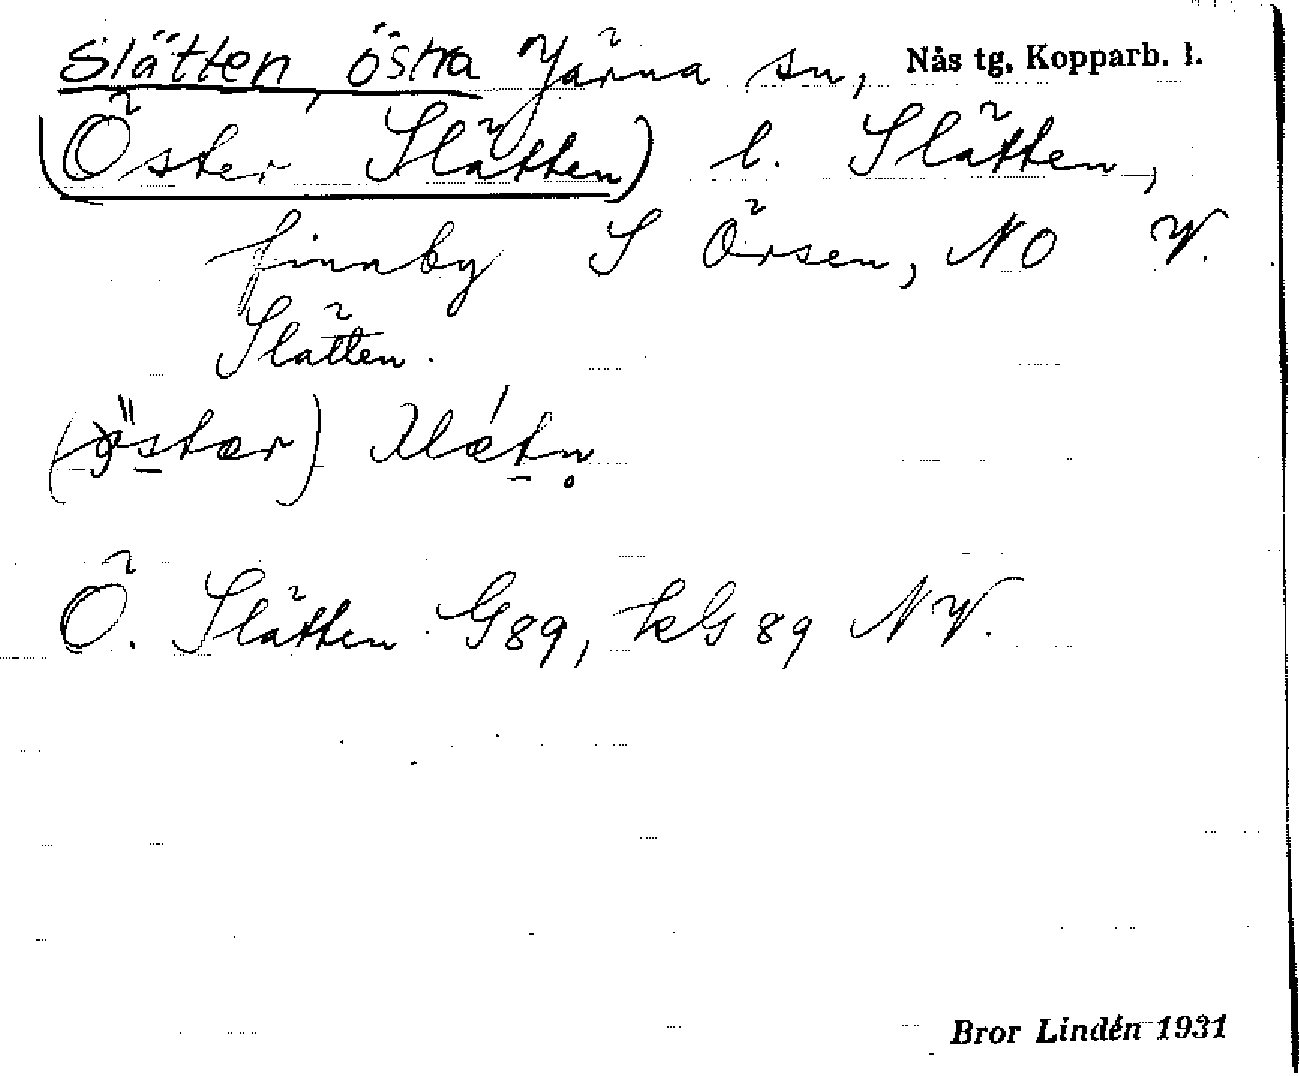 Slätten, östra Järna sn, Nås tg, Kopparb. l.
(Öster Slätten) l. Slätten,
finnby S Örsen, NO V.
Slätten.
Ö. Slätten G89, kG 89 NV.
Bror Lindén 1931